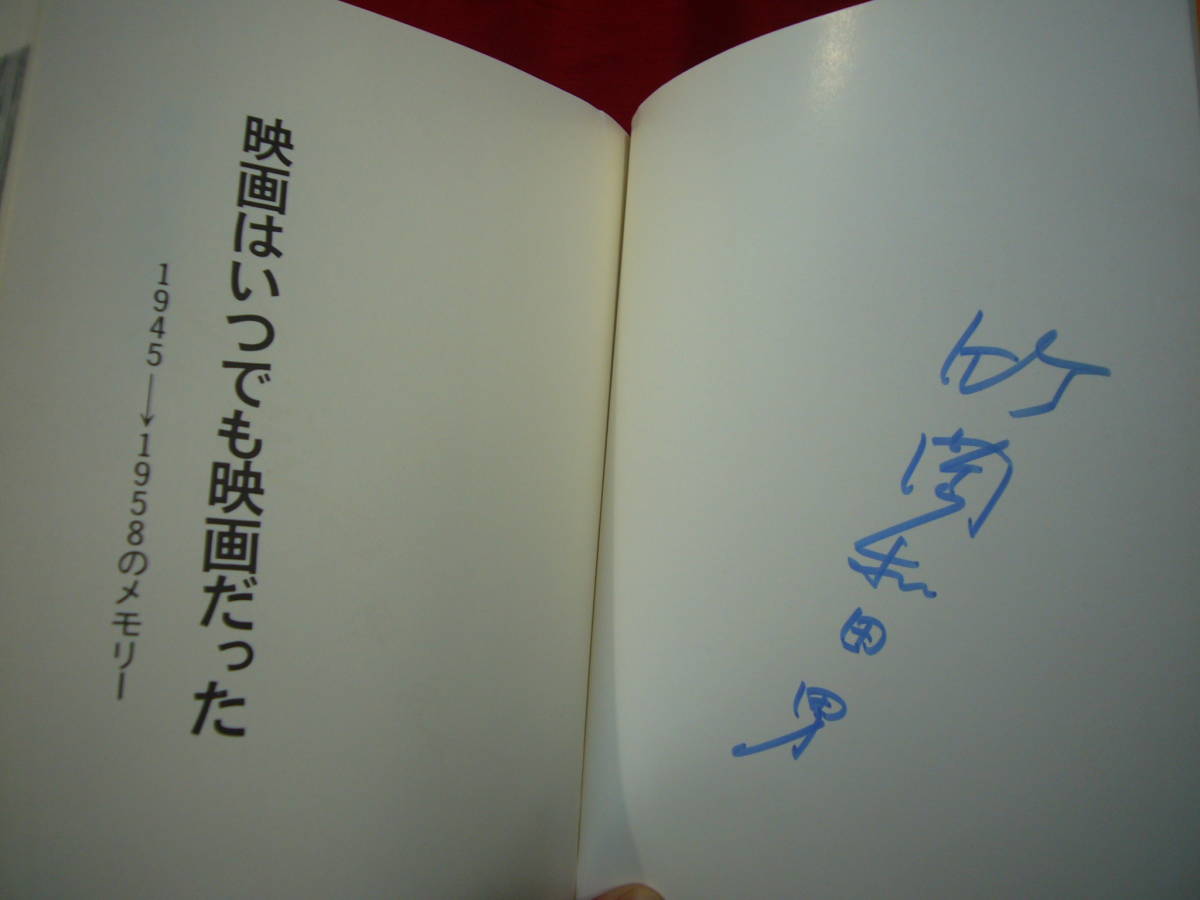 竹岡和田男
映画はいつでも映画だった
1945→1958のメモリー